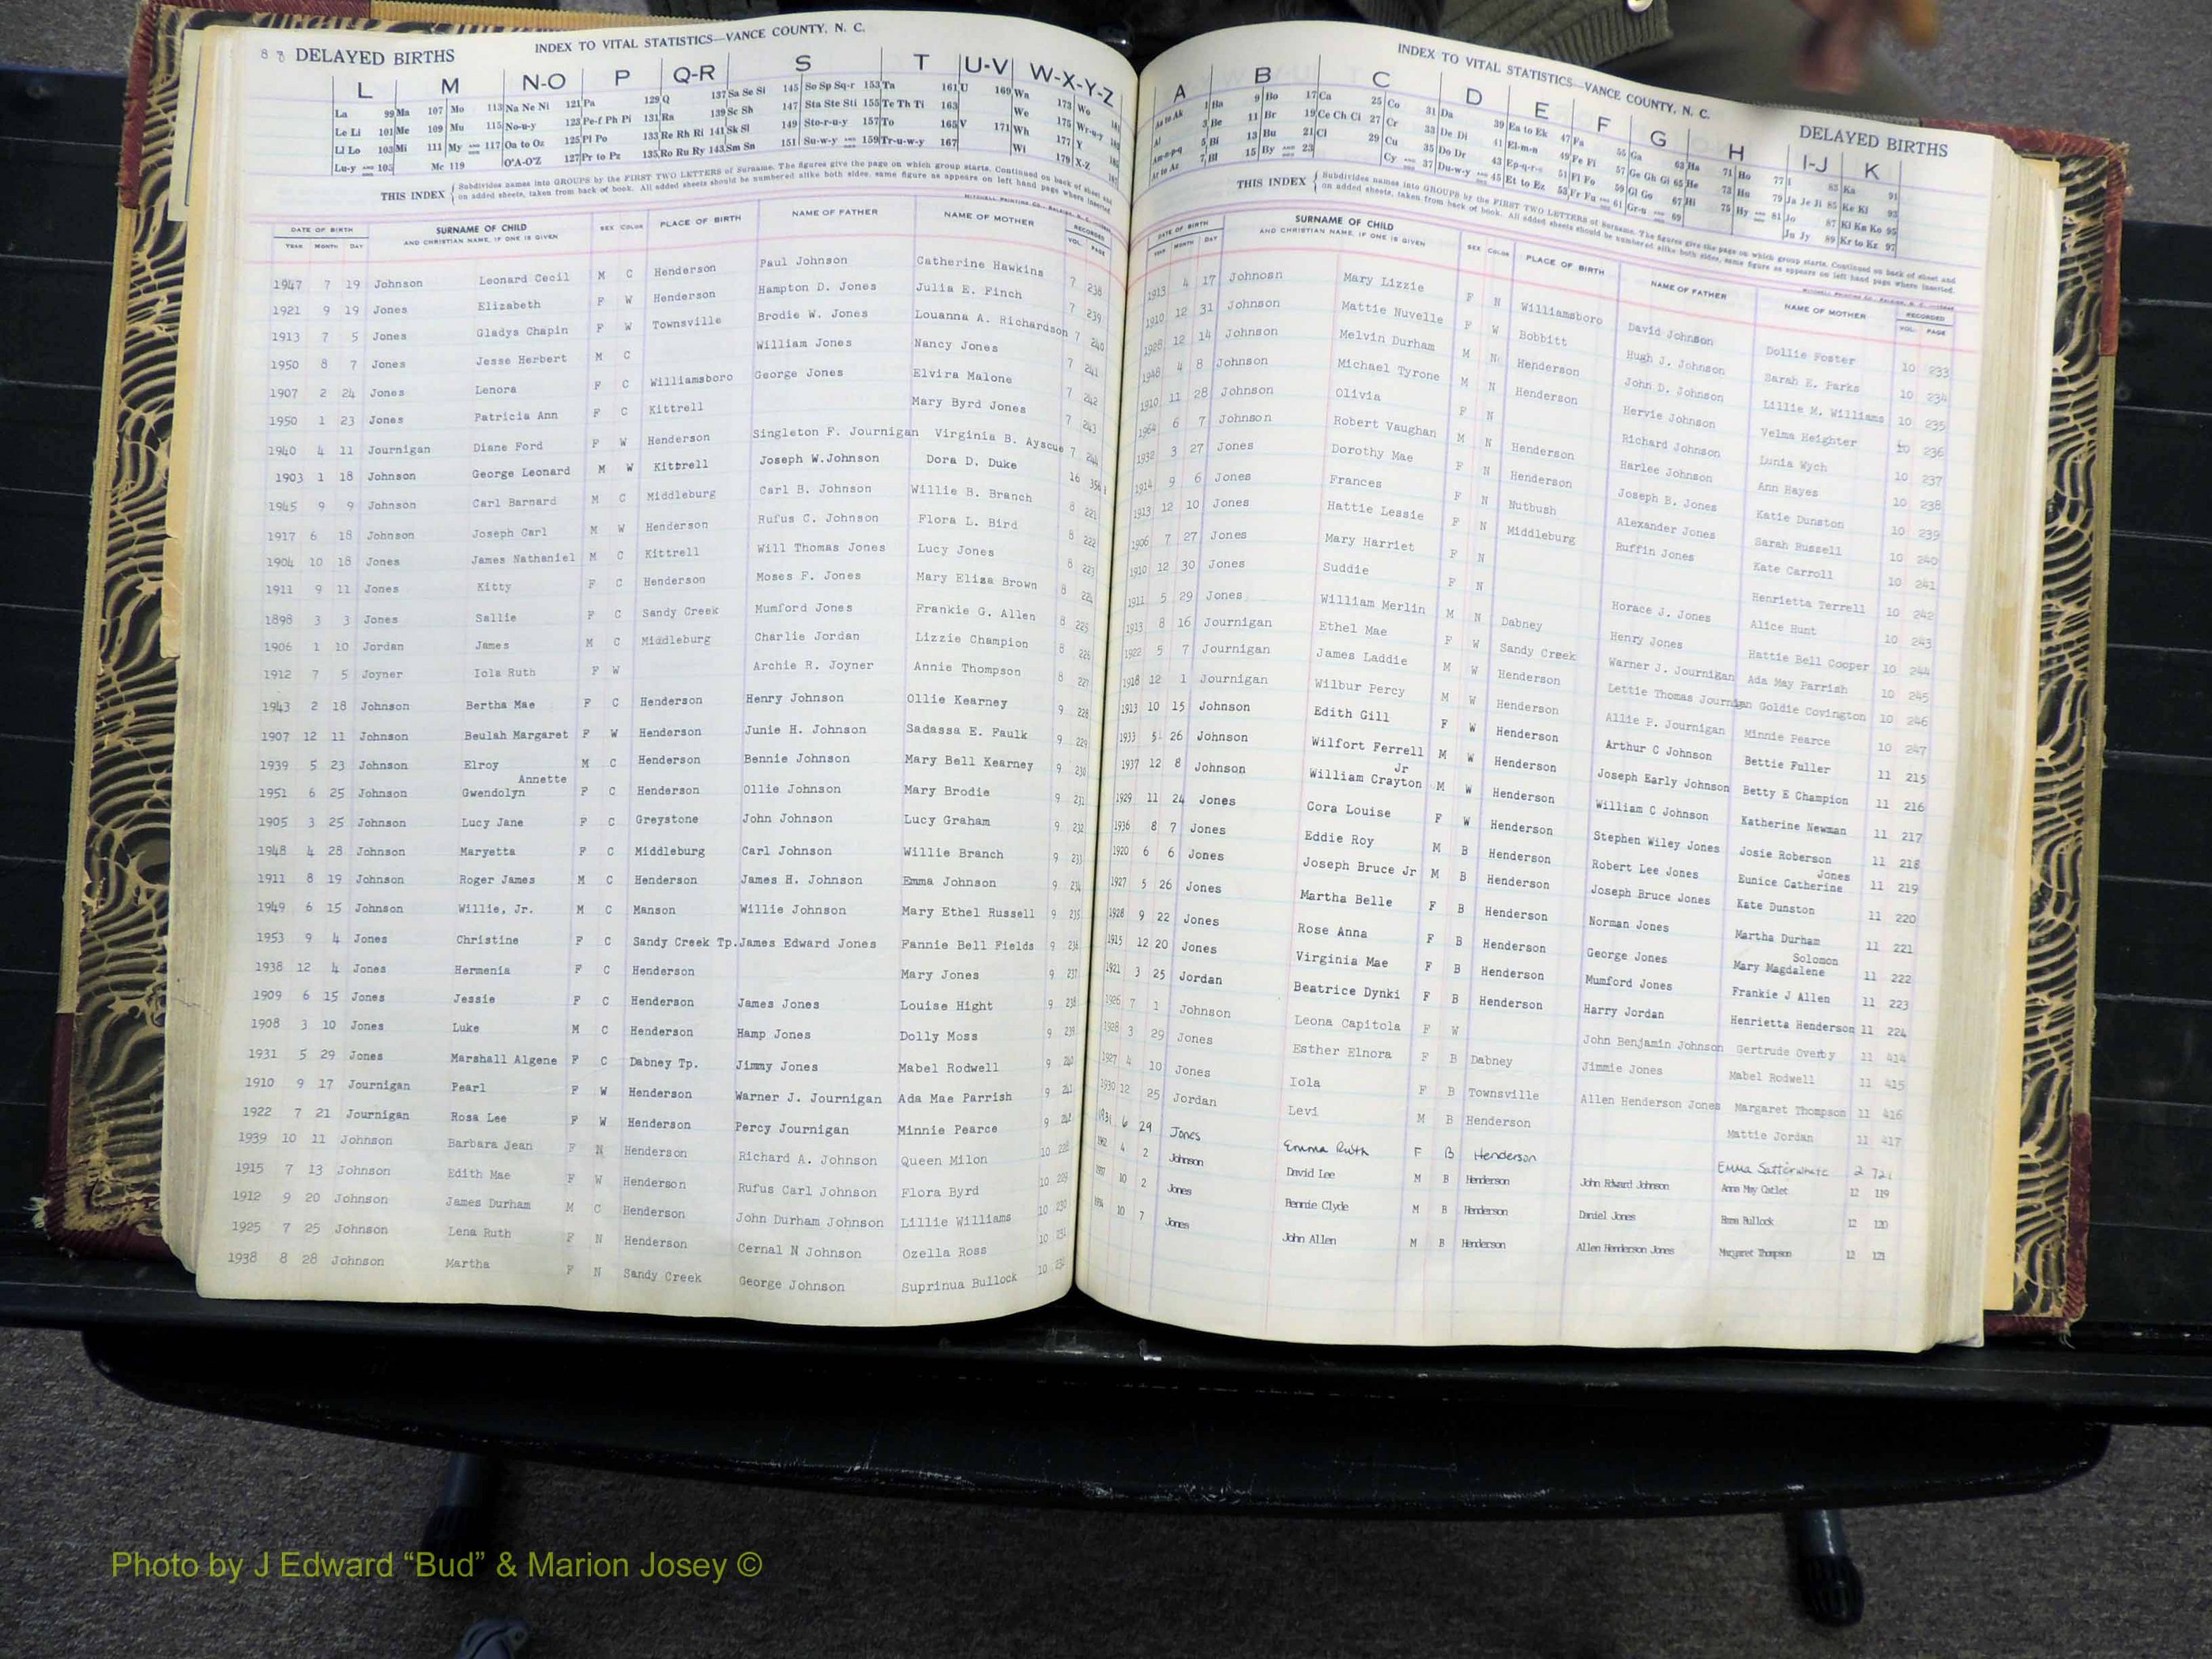 88 DELAYED BIRTHS
INDEX TO VITAL STATISTICS—VANCE COUNTY, N. C.
L M N-O P Q-R S T U-V W-X-Y-Z
La 99 Ma 107 Mo 113 Na Ne Ni 121 Pa 129 Q 137 Sa Se Si 145 So Sp Sq-r 153 Ta 161 U 169 Wa 173 Wo
Le Li 101 Me 109 Mu 115 No-u-y 123 Pe-f Ph Pi 131 Ra 139 Sc Sh 147 Sta Ste Sti 155 Te Th Ti 163 We 175 Wr-u-y
Ll Lo 103 Mi 111 My AND 117 Oa to Oz 125 Pl Po 133 Re Rh Ri 141 Sk Sl 149 Sto-r-u-y 157 To 165 V 171 Wh 177 Y
Lu-y AND 105 Mc 119 O'A-O'Z 127 Pr to Pz 135 Ro Ru Ry 143 Sm Sn 151 Su-w-y AND 159 Tr-u-w-y 167 Wi 179 X-Z
THIS INDEX { Subdivides names into GROUPS by the FIRST TWO LETTERS of Surname. The figures give the page on which group starts. Continued on back of sheet and
on added sheets, taken from back of book. All added sheets should be numbered alike both sides, same figure as appears on left hand page where inserted.
MITCHELL PRINTING CO., RALEIGH, N. C.
DATE OF BIRTH SURNAME OF CHILD SEX COLOR PLACE OF BIRTH NAME OF FATHER NAME OF MOTHER RECORDED
YEAR MONTH DAY AND CHRISTIAN NAME, IF ONE IS GIVEN VOL. PAGE
1947 7 19 Johnson Leonard Cecil M C Henderson Paul Johnson Catherine Hawkins 7 238
1921 9 19 Jones Elizabeth F W Henderson Hampton D. Jones Julia E. Finch 7 239
1913 7 5 Jones Gladys Chapin F W Townsville Brodie W. Jones Louanna A. Richardson 7 240
1950 8 7 Jones Jesse Herbert M C William Jones Nancy Jones 7 241
1907 2 24 Jones Lenora F C Williamsboro George Jones Elvira Malone 7 242
1950 1 23 Jones Patricia Ann F C Kittrell Mary Byrd Jones 7 243
1940 4 11 Journigan Diane Ford F W Henderson Singleton F. Journigan Virginia B. Ayscue 7 244
1903 1 18 Johnson George Leonard M W Kittrell Joseph W.Johnson Dora D. Duke 16 356
1945 9 9 Johnson Carl Barnard M C Middleburg Carl B. Johnson Willie B. Branch 8 221
1917 6 18 Johnson Joseph Carl M W Henderson Rufus C. Johnson Flora L. Bird 8 222
1904 10 18 Jones James Nathaniel M C Kittrell Will Thomas Jones Lucy Jones 8 223
1911 9 11 Jones Kitty F C Henderson Moses F. Jones Mary Eliza Brown 8 224
1898 3 3 Jones Sallie F C Sandy Creek Mumford Jones Frankie G. Allen 8 225
1906 1 10 Jordan James M C Middleburg Charlie Jordan Lizzie Champion 8 226
1912 7 5 Joyner Iola Ruth F W Archie R. Joyner Annie Thompson 8 227
1943 2 18 Johnson Bertha Mae F C Henderson Henry Johnson Ollie Kearney 9 228
1907 12 11 Johnson Beulah Margaret F W Henderson Junie H. Johnson Sadassa E. Faulk 9 229
1939 5 23 Johnson Elroy M C Henderson Bennie Johnson Mary Bell Kearney 9 230
Annette
1951 6 25 Johnson Gwendolyn F C Henderson Ollie Johnson Mary Brodie 9 231
1905 3 25 Johnson Lucy Jane F C Greystone John Johnson Lucy Graham 9 232
1948 4 28 Johnson Maryetta F C Middleburg Carl Johnson Willie Branch 9 233
1911 8 19 Johnson Roger James M C Henderson James H. Johnson Emma Johnson 9 234
1949 6 15 Johnson Willie, Jr. M C Manson Willie Johnson Mary Ethel Russell 9 235
1953 9 4 Jones Christine F C Sandy Creek Tp. James Edward Jones Fannie Bell Fields 9 236
1938 12 4 Jones Hermenia F C Henderson Mary Jones 9 237
1909 6 15 Jones Jessie F C Henderson James Jones Louise Hight 9 238
1908 3 10 Jones Luke M C Henderson Hamp Jones Dolly Moss 9 239
1931 5 29 Jones Marshall Algene F C Dabney Tp. Jimmy Jones Mabel Rodwell 9 240
1910 9 17 Journigan Pearl F W Henderson Warner J. Journigan Ada Mae Parrish 9 241
1922 7 21 Journigan Rosa Lee F W Henderson Percy Journigan Minnie Pearce 9 242
1939 10 11 Johnson Barbara Jean F N Henderson Richard A. Johnson Queen Milon 10 228
1915 7 13 Johnson Edith Mae F W Henderson Rufus Carl Johnson Flora Byrd 10 229
1912 9 20 Johnson James Durham M C Henderson John Durham Johnson Lillie Williams 10 230
1925 7 25 Johnson Lena Ruth F N Henderson Cernal N Johnson Ozella Ross 10 231
1938 8 28 Johnson Martha F N Sandy Creek George Johnson Suprinua Bullock 10 232
INDEX TO VITAL STATISTICS—VANCE COUNTY, N. C.
DELAYED BIRTHS
A B C D E F G H I-J K
Aa to Ak 1 Ba 9 Bo 17 Ca 25 Co 31 Da 39 Ea to Ek 47 Fa 55 Ga 63 Ha 71 Ho 77 I 83 Ka 91
Al 3 Be 11 Br 19 Ce Ch Ci 27 Cr 33 De Di 41 El-m-n 49 Fe Fi 57 Ge Gh Gi 65 He 73 Hu 79 Ja Je Ji 85 Ke Ki 93
Am-n-p-q 5 Bi 13 Bu 21 Cl 29 Cu 35 Do Dr 43 Ep-q-r-s 51 Fl Fo 59 Gl Go 67 Hi 75 Hy AND 81 Jo 87 Kl Kn Ko 95
Ar to Az 7 Bl 15 By AND 23 Cy AND 37 Du-w-y AND 45 Et to Ez 53 Fr Fu AND 61 Gr-u AND 69 Ju Jy 89 Kr to Kz 97
THIS INDEX { Subdivides names into GROUPS by the FIRST TWO LETTERS of Surname. The figures give the page on which group starts. Continued on back of sheet and
on added sheets, taken from back of book. All added sheets should be numbered alike both sides, same figure as appears on left hand page where inserted.
MITCHELL PRINTING CO., RALEIGH, N. C.
DATE OF BIRTH SURNAME OF CHILD SEX COLOR PLACE OF BIRTH NAME OF FATHER NAME OF MOTHER RECORDED
YEAR MONTH DAY AND CHRISTIAN NAME, IF ONE IS GIVEN VOL. PAGE
1913 4 17 Johnosn Mary Lizzie F N Williamsboro David Johnson Dollie Foster 10 233
1910 12 31 Johnson Mattie Nuvelle F W Bobbitt Hugh J. Johnson Sarah E. Parks 10 234
1928 12 14 Johnson Melvin Durham M N Henderson John D. Johnson Lillie M. Williams 10 235
1948 4 8 Johnson Michael Tyrone M N Henderson Hervie Johnson Velma Heighter 10 236
1910 11 28 Johnson Olivia F N Richard Johnson Lunia Wych 10 237
1964 6 7 Johnson Robert Vaughan M N Henderson Harlee Johnson Ann Hayes 10 238
1932 3 27 Jones Dorothy Mae F N Henderson Joseph B. Jones Katie Dunston 10 239
1914 9 6 Jones Frances F N Nutbush Alexander Jones Sarah Russell 10 240
1913 12 10 Jones Hattie Lessie F N Middleburg Ruffin Jones Kate Carroll 10 241
1906 7 27 Jones Mary Harriet F N Henrietta Terrell 10 242
1910 12 30 Jones Suddie F N Horace J. Jones Alice Hunt 10 243
1911 5 29 Jones William Merlin M N Dabney Henry Jones Hattie Bell Cooper 10 244
1913 8 16 Journigan Ethel Mae F W Sandy Creek Warner J. Journigan Ada May Parrish 10 245
1922 5 7 Journigan James Laddie M W Henderson Lettie Thomas Journigan Goldie Covington 10 246
1918 12 1 Journigan Wilbur Percy M W Henderson Allie P. Journigan Minnie Pearce 10 247
1913 10 15 Johnson Edith Gill F W Henderson Arthur C Johnson Bettie Fuller 11 215
1933 5 26 Johnson Wilfort Ferrell M W Henderson Joseph Early Johnson Betty E Champion 11 216
Jr
1937 12 8 Johnson William Crayton M W Henderson William C Johnson Katherine Newman 11 217
1929 11 24 Jones Cora Louise F W Henderson Stephen Wiley Jones Josie Roberson 11 218
Jones
1936 8 7 Jones Eddie Roy M B Henderson Robert Lee Jones Eunice Catherine 11 219
1920 6 6 Jones Joseph Bruce Jr M B Henderson Joseph Bruce Jones Kate Dunston 11 220
1927 5 26 Jones Martha Belle F B Henderson Norman Jones Martha Durham 11 221
Solomon
1928 9 22 Jones Rose Anna F B Henderson George Jones Mary Magdalene 11 222
1915 12 20 Jones Virginia Mae F B Henderson Mumford Jones Frankie J Allen 11 223
1921 3 25 Jordan Beatrice Dynki F B Henderson Harry Jordan Henrietta Henderson 11 224
1926 7 1 Johnson Leona Capitola F W John Benjamin Johnson Gertrude Overby 11 414
1928 3 29 Jones Esther Elnora F B Dabney Jimmie Jones Mabel Rodwell 11 415
1927 4 10 Jones Iola F B Townsville Allen Henderson Jones Margaret Thompson 11 416
1930 12 25 Jordan Levi M B Henderson Mattie Jordan 11 417
1931 6 29 Jones Emma Ruth F B Henderson Emma Satterwhite 2 721
4 2 Johnson David Lee M B Henderson John Edward Johnson Anna May Catlet 12 119
1937 10 2 Jones Bennie Clyde M B Henderson Daniel Jones Emma Bullock 12 120
10 7 Jones John Allen M B Henderson Allen Henderson Jones Margaret Thompson 12 121
Photo by J Edward “Bud” & Marion Josey ©